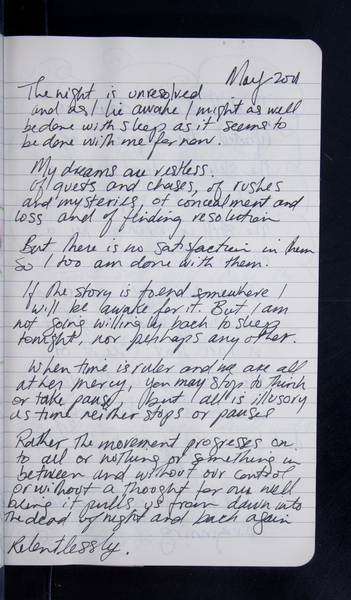 May 2011
The night is unresolved
and as I lie awake I might as well
be done with sleep as it seems to
be done with me for now.
My dreams are restless,
of quests and chases, of rushes
and mysteries, of concealment and
loss and of finding resolution
But there is no satisfaction in them
So I too am done with them.
If the story is to end somewhere I
will be awake for it. But I am
not going willingly back to sleep
tonight, nor perhaps any other.
When time is ruler and we are all
at her mercy, you may stop to think
or take pause, but all is illusory
as time neither stops or pauses
Rather the movement progresses on
to all or nothing or something in
between and without our control
or without a thought for our well
being it pulls us from dawn into
the dead of night and back again
Relentlessly.